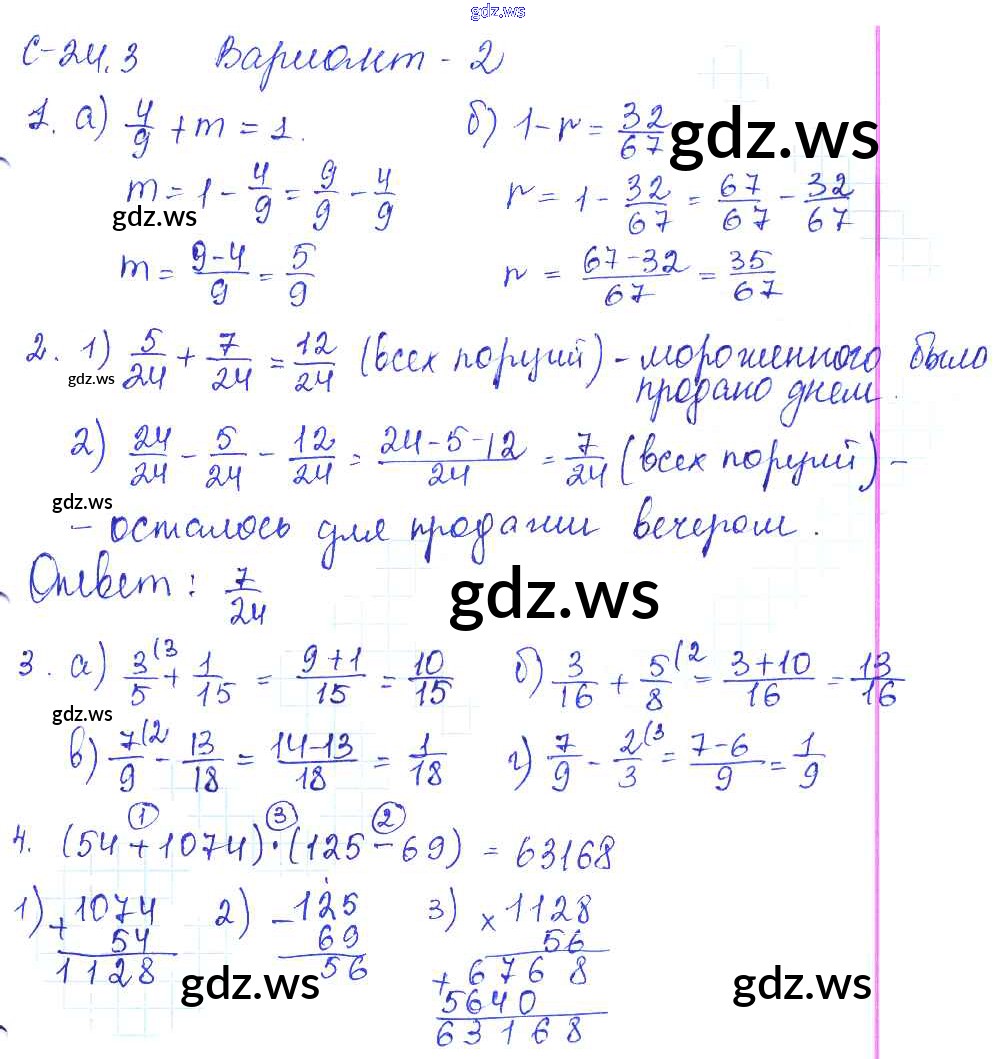 gdz.ws
С-24.3 Вариант - 2
1. а) 4/9 + m = 1. б) 1 - r = 32/67 gdz.ws
m = 1 - 4/9 = 9/9 - 4/9 r = 1 - 32/67 = 67/67 - 32/67
gdz.ws
m = (9-4)/9 = 5/9 r = (67-32)/67 = 35/67
2. 1) 5/24 + 7/24 = 12/24 (всех порций) - мороженного было
gdz.ws продано днем.
2) 24/24 - 5/24 - 12/24 = (24-5-12)/24 = 7/24 (всех порций) -
gdz.ws
- осталось для продажи вечером.
Ответ: 7/24 gdz.ws
3. а) 3/5 (3 + 1/15 = (9+1)/15 = 10/15 б) 3/16 + 5/8 (2 = (3+10)/16 = 13/16
gdz.ws
в) 7/9 (2 - 13/18 = (14-13)/18 = 1/18 г) 7/9 - 2/3 (3 = (7-6)/9 = 1/9
① ③ ②
4. (54 + 1074) · (125 - 69) = 63168
1) + 1074 2) - 125 3) × 1128
54 69 56
1128 56 + 6768
gdz.ws gdz.ws gdz.ws
5640
63168